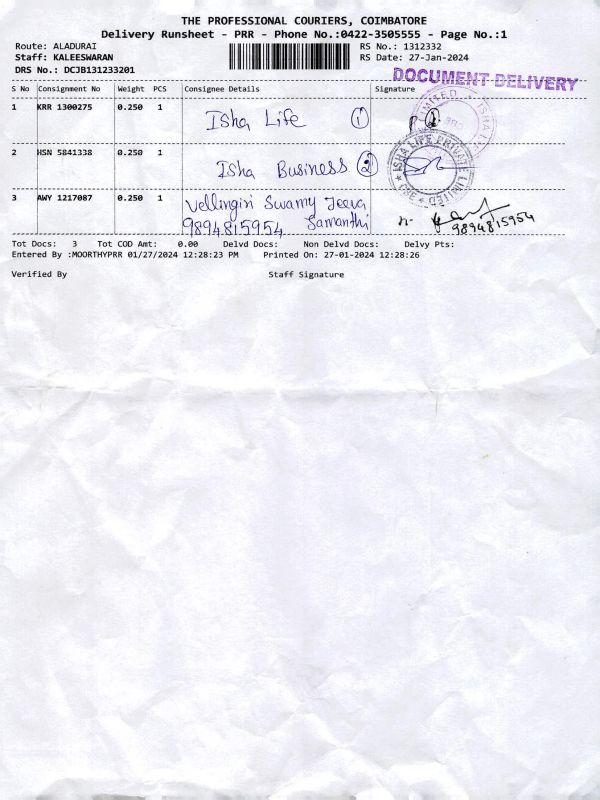 THE PROFESSIONAL COURIERS, COIMBATORE
Delivery Runsheet - PRR - Phone No.:0422-3505555 - Page No.:1
Route: ALADURAI RS No.: 1312332
Staff: KALEESWARAN RS Date: 27-Jan-2024
DRS No.: DCJB131233201
DOCUMENT DELIVERY
S No Consignment No Weight PCS Consignee Details Signature
1 KRR 1300275 0.250 1 Isha Life 1
2 HSN 5841338 0.250 1 Isha Business 2
ISHA LIFE PRIVATE LIMITED
3 AWY 1217087 0.250 1 Vellingiri Swamy Jeeva
9894815954 Samanthi 9894815954
Tot Docs: 3 Tot COD Amt: 0.00 Delvd Docs: Non Delvd Docs: Delvy Pts:
Entered By :MOORTHYPRR 01/27/2024 12:28:23 PM Printed On: 27-01-2024 12:28:26
Verified By Staff Signature